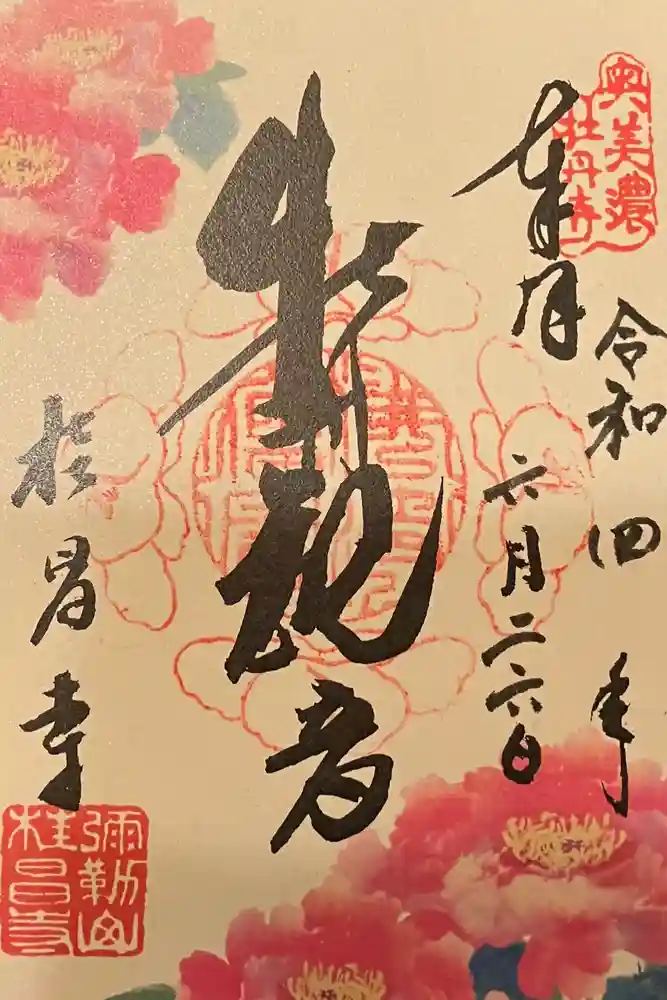 奥美濃
牡丹寺
奉拝
令和四年
六月二六日
牡丹観音
桂昌寺
彌勒山
桂昌寺